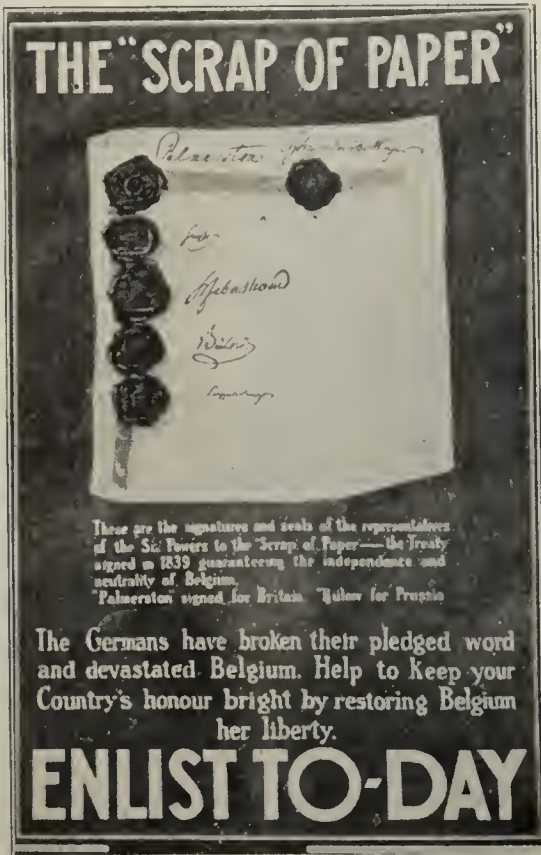 THE "SCRAP OF PAPER"
Palmerston
Bülow
These are the signatures and seals of the representatives
of the Six Powers to the "Scrap of Paper"—the Treaty
signed in 1839 guaranteeing the independence and
neutrality of Belgium.
"Palmerston" signed for Britain. "Bülow" for Prussia
The Germans have broken their pledged word
and devastated Belgium. Help to keep your
Country's honour bright by restoring Belgium
her liberty.
ENLIST TO-DAY